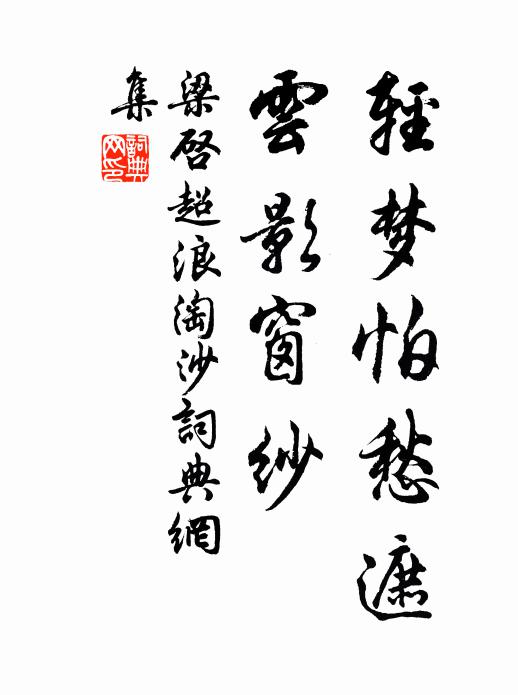 輕梦怕愁遮
雲影窗紗
梁啓超浪淘沙詞典網
集
詞典
网印